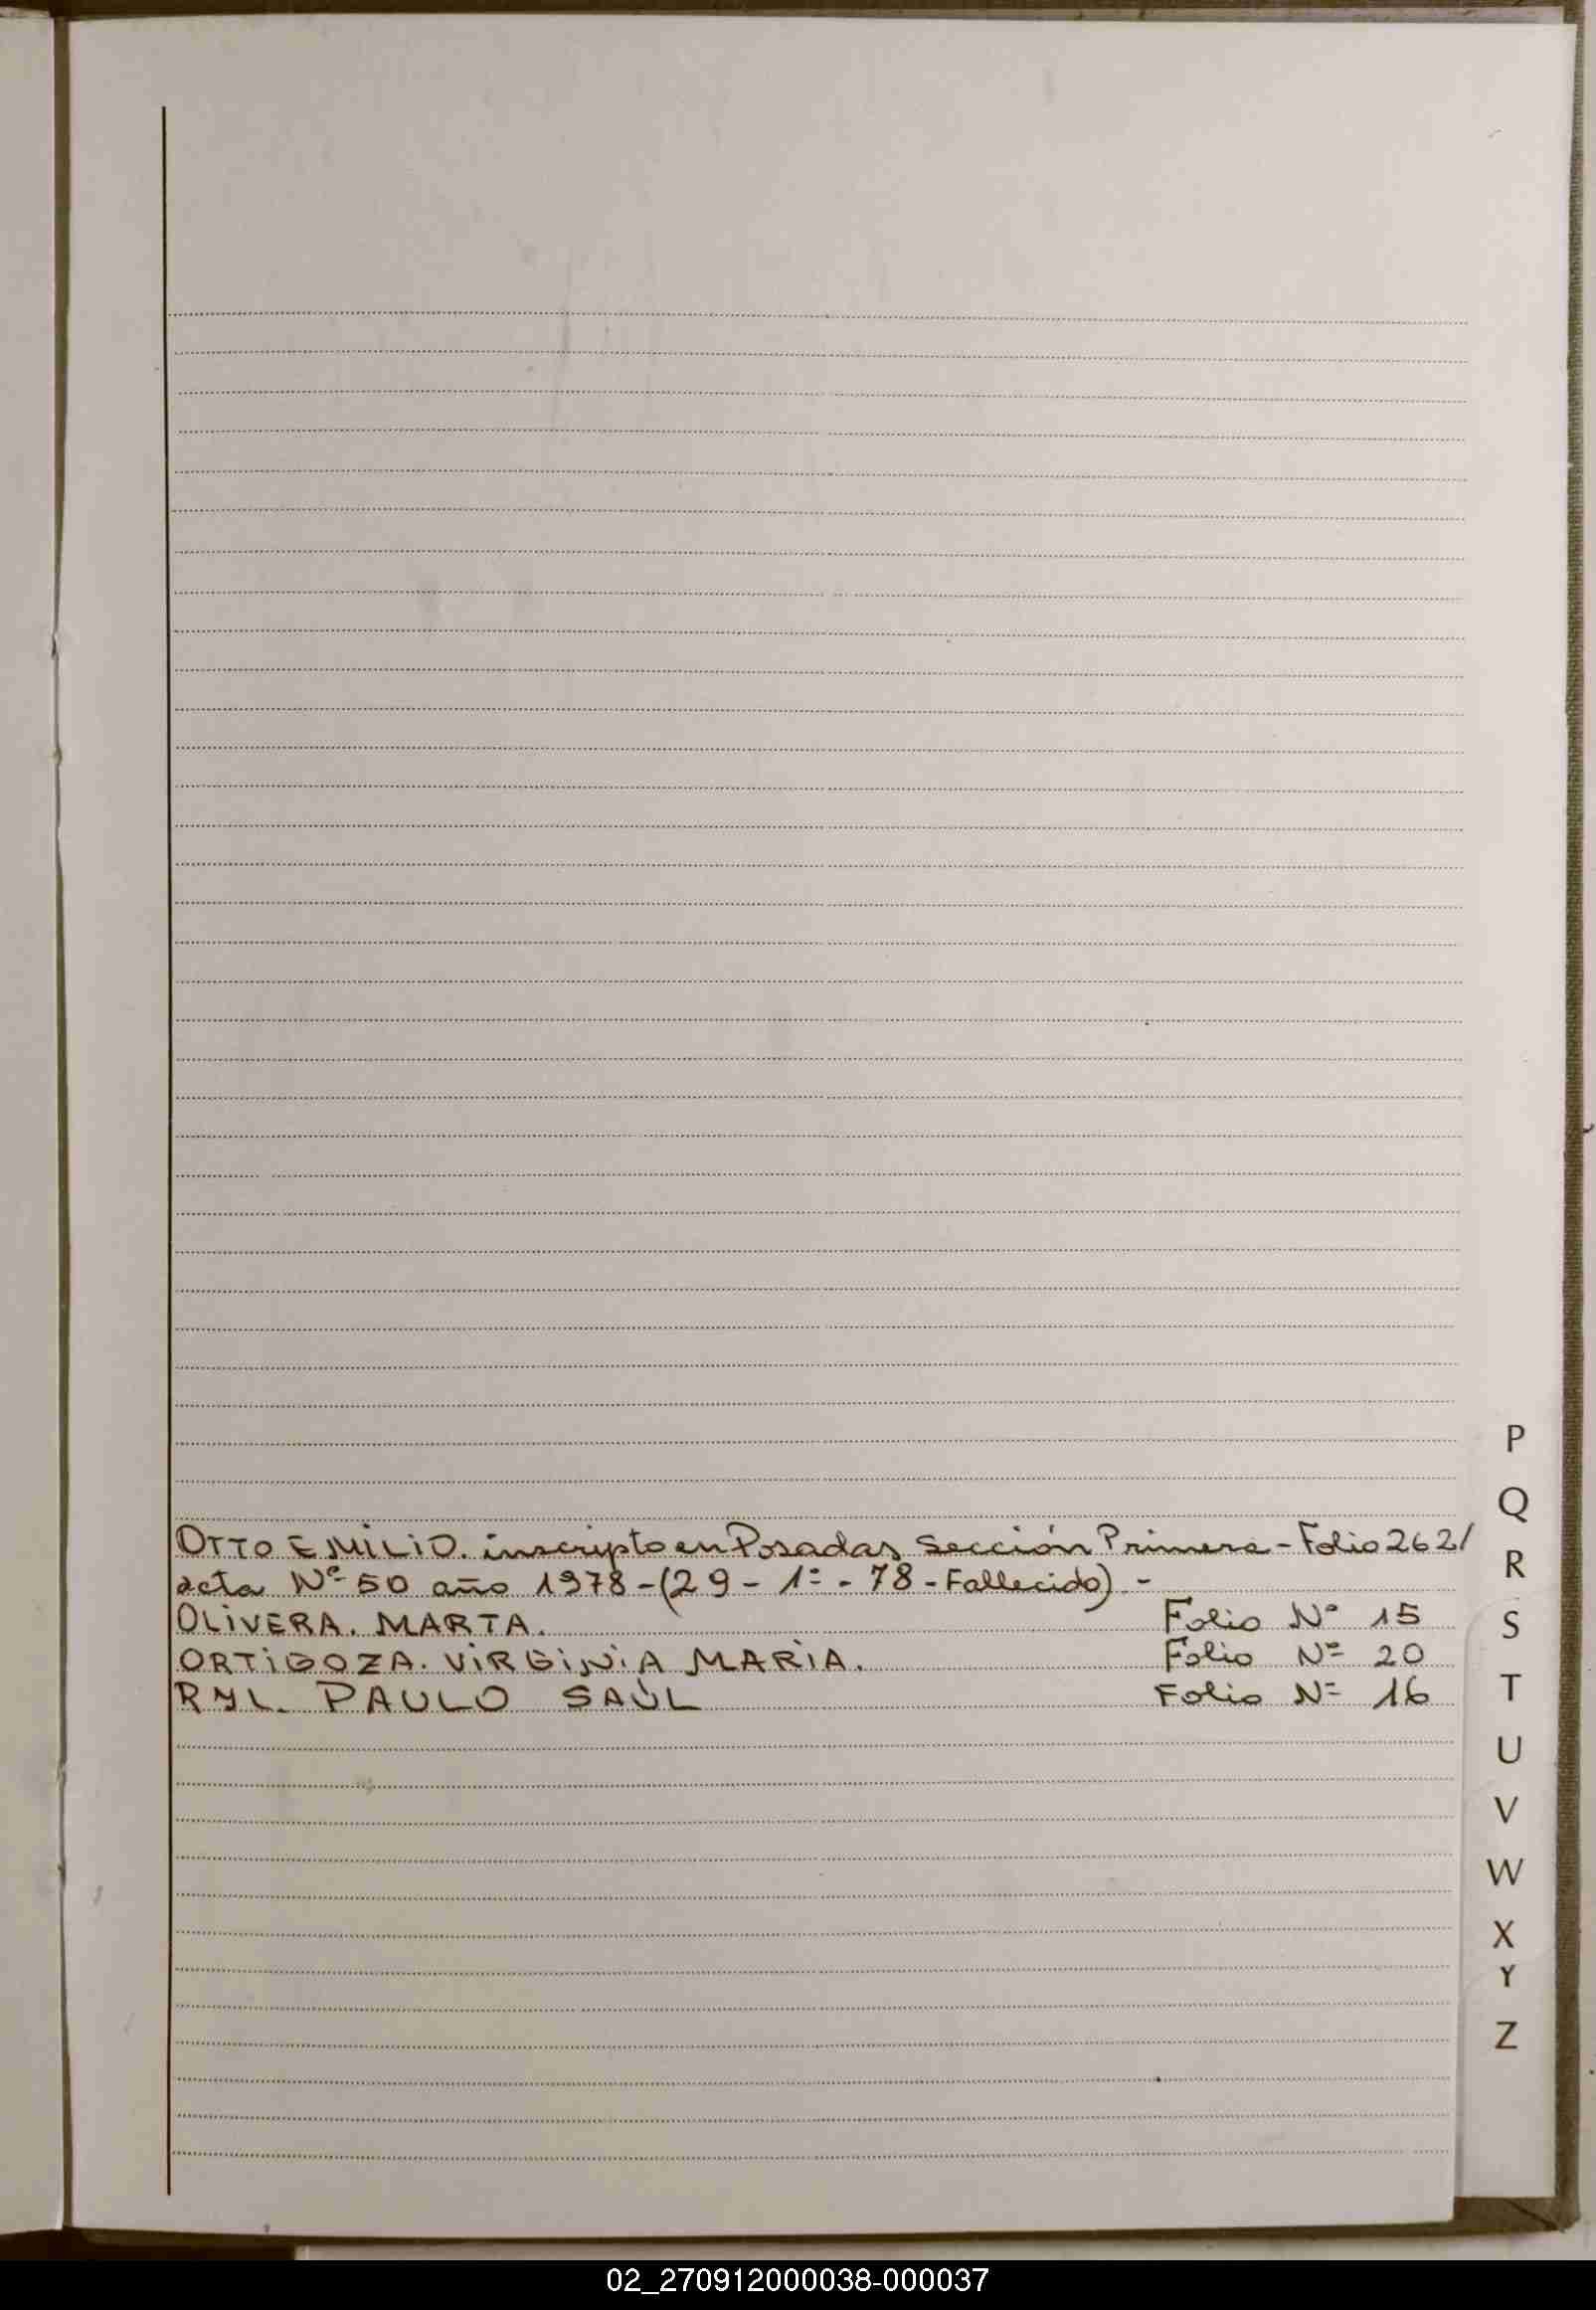 OTTO EMILIO. inscripto en Posadas Sección Primera - Folio 262/
acta Nº 50 año 1978 - (29 - 1º - 78 - Fallecido) -
OLIVERA. MARTA. Folio Nº 15
ORTIGOZA. VIRGINIA MARIA. Folio Nº 20
RYL. PAULO SAÚL Folio Nº 16
P
Q
R
S
T
U
V
W
X
Y
Z
02_270912000038-000037